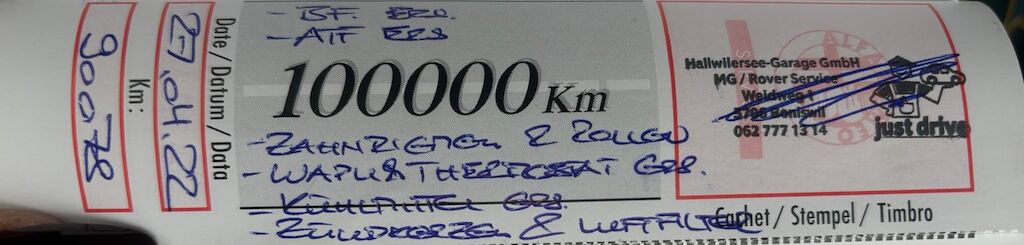 Date / Datum / Data
27.04.22
Km:
90078
- BF. ERS.
- ATF ERS
100000 Km
- ZAHNRIEMEN & ROLLEN
- WAPU & THERMOSTAT ERS.
- KÜHLMITTEL ERS.
- ZÜNDKERZEN & LUFTFILTER
Hallwilersee-Garage GmbH
MG / Rover Service
Weidweg 1
5708 Beniswil
062 777 13 14
just drive
ALFA ROMEO
Cachet / Stempel / Timbro